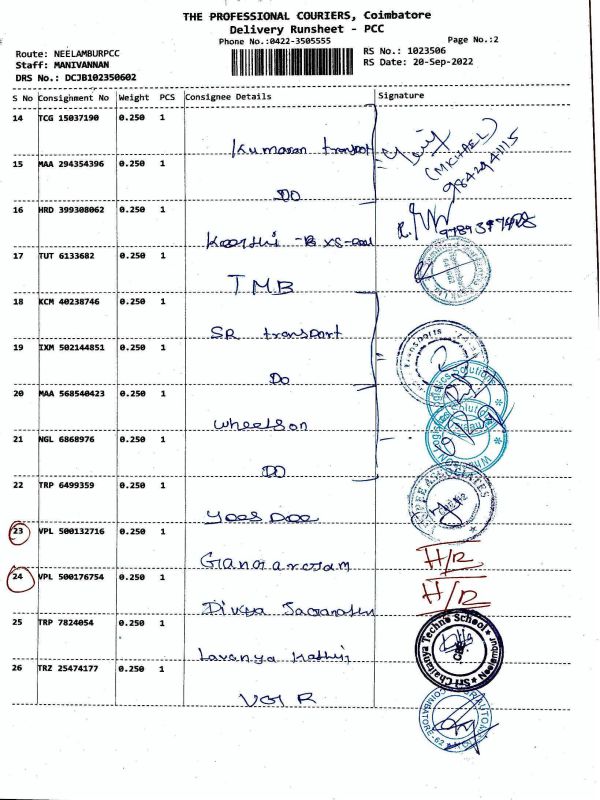 THE PROFESSIONAL COURIERS, Coimbatore
Delivery Runsheet - PCC
Phone No.:0422-3505555
Page No.:2
Route: NEELAMBURPCC
RS No.: 1023506
Staff: MANIVANNAN
RS Date: 20-Sep-2022
DRS No.: DCJB102350602
S No Consignment No Weight PCS Consignee Details Signature
14 TCG 15037190 0.250 1
Kumaran transport
(MICHAEL)
15 MAA 294354396 0.250 1
DO
16 HRD 399308062 0.250 1
17 TUT 6133682 0.250 1
TMB
18 KCM 40238746 0.250 1
SR transport
19 IXM 502144851 0.250 1
Do
20 MAA 568540423 0.250 1
Wheelson
21 NGL 6868976 0.250 1
DO
22 TRP 6499359 0.250 1
23 VPL 500132716 0.250 1
H/R
24 VPL 500176754 0.250 1
H/R
Divya
25 TRP 7824054 0.250 1
Lavanya
Sri Chaitanya Techno School
Neelambur
26 TRZ 25474177 0.250 1
COIMBATORE-62